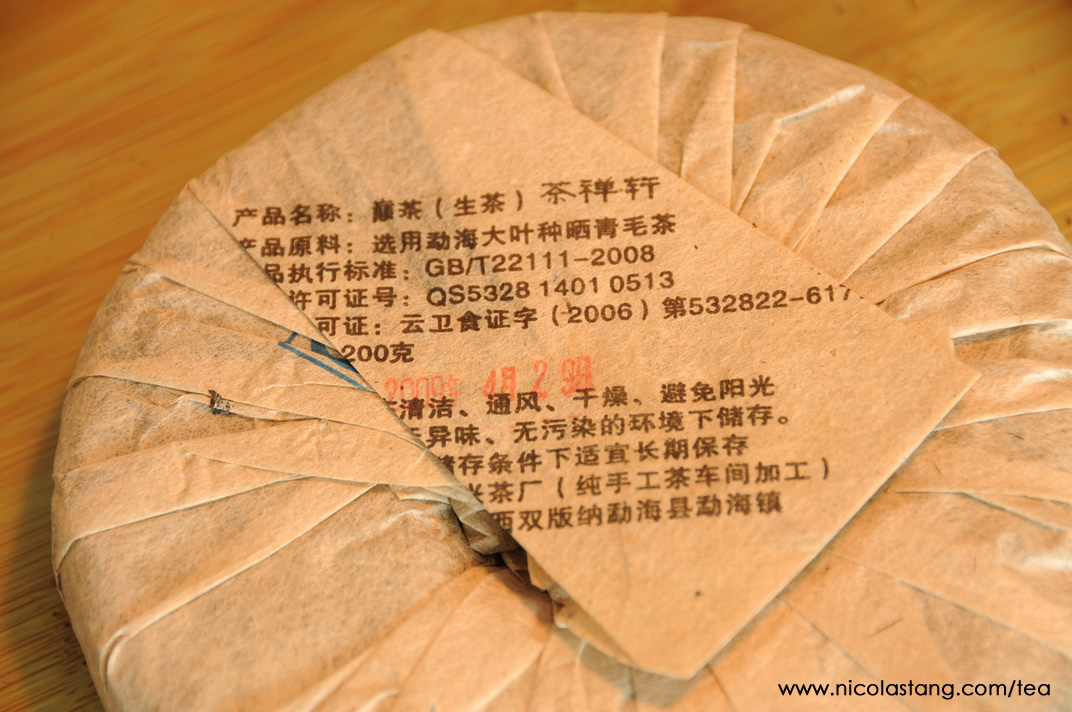 产品名称：巅茶（生茶）茶禅轩
产品原料：选用勐海大叶种晒青毛茶
品执行标准：GB/T22111-2008
许可证号：QS5328 1401 0513
可证：云卫食证字（2006）第532822-617
200克
2009年 4月 29日
清洁、通风、干燥、避免阳光
无异味、无污染的环境下储存。
储存条件下适宜长期保存
茶厂（纯手工茶车间加工）
西双版纳勐海县勐海镇
www.nicolastang.com/tea